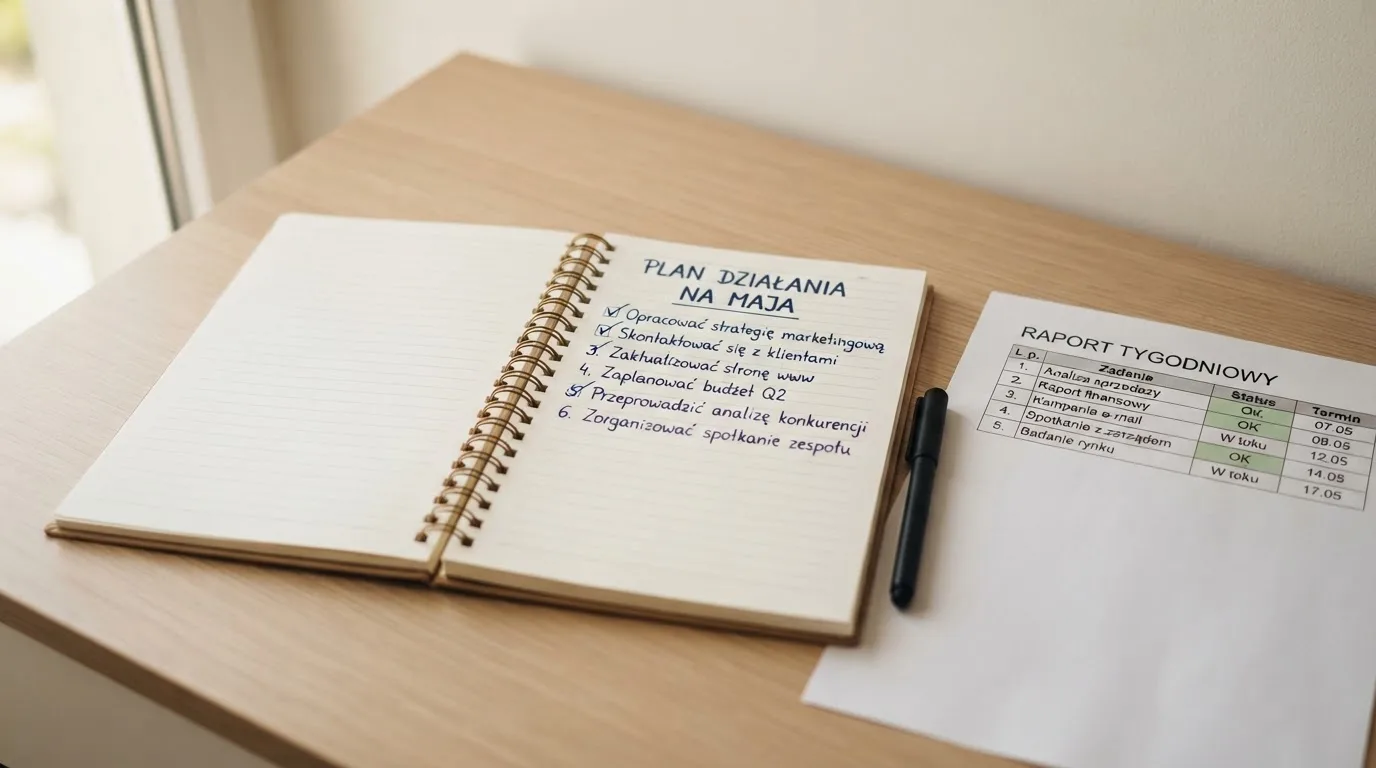 PLAN DZIAŁANIA
NA MAJA
☑ Opracować strategię marketingową
☑ Skontaktować się z klientami
3. Zaktualizować stronę www
4. Zaplanować budżet Q2
5. Przeprowadzić analizę konkurencji
6. Zorganizować spotkanie zespołu
RAPORT TYGODNIOWY
L.p. Zadanie Status Termin
1. Analiza sprzedaży 07.05
2. Raport finansowy OK 08.05
3. Kampania e-mail W toku 12.05
4. Spotkanie z OK 14.05
5. Badanie rynku W toku 17.05